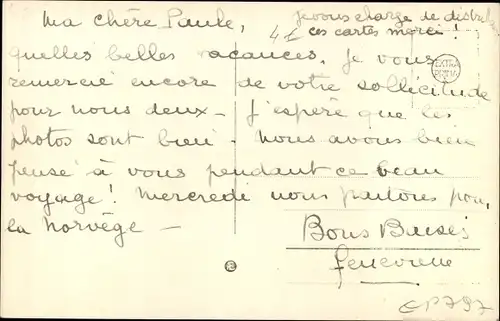 Ma chère Paule,
je vous charge de distribuer
ces cartes merci !
quelles belles vacances. Je vous
remercie encore de votre sollicitude
pour nous deux - J'espère que les
photos sont bien - Nous avons bien
pensé à vous pendant ce beau
voyage ! Mercredi nous partons pour
la Norvège -
Bons Baisers
Geneviève
EXTRA
PRIMA
CP797